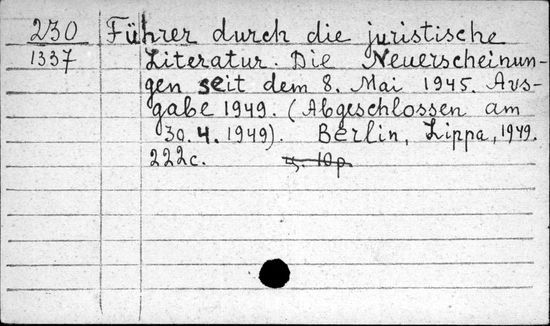 230 Führer durch die juristische
1337 Literatur. Die Neuerscheinun-
gen seit dem 8. Mai 1945. Aus-
gabe 1949. (Abgeschlossen am
30. 4. 1949). Berlin, Lippa, 1949.
222c. ц. 10р.